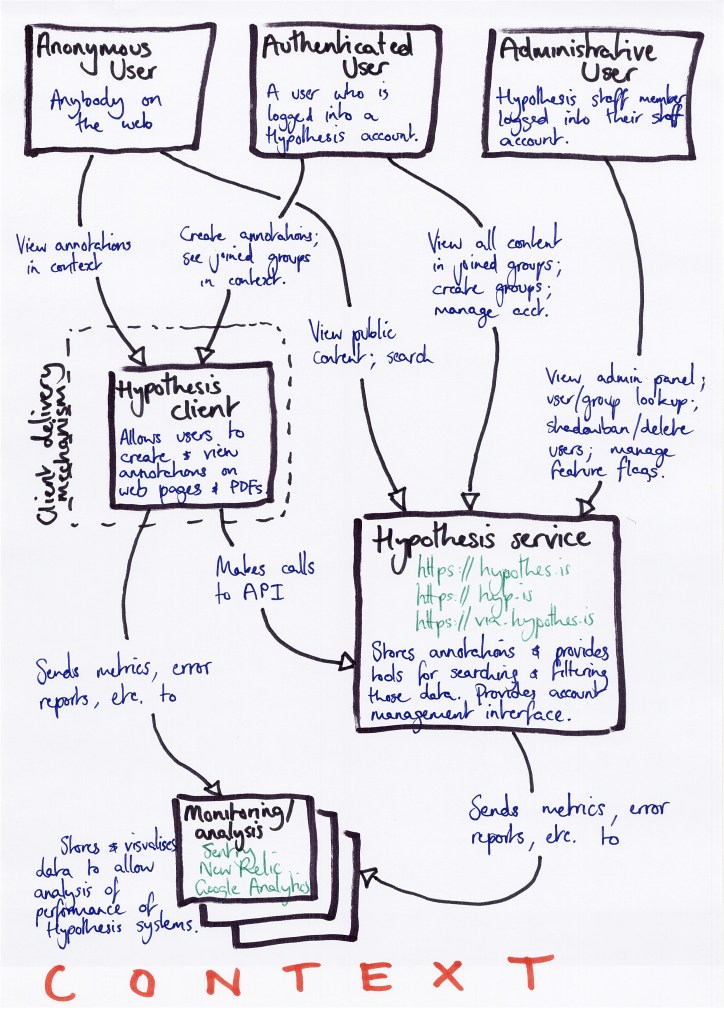 Anonymous
User
Anybody on
the web
Authenticated
User
A user who is
logged into a
Hypothesis account.
Administrative
User
Hypothesis staff member
logged into their staff
account.
View annotations
in context
Create annotations;
see joined groups
in context.
View public
content; search
View all content
in joined groups;
create groups;
manage acct.
View admin panel;
user/group lookup;
shadowban/delete
users; manage
feature flags.
Client delivery
mechanism
Hypothesis
client
Allows users to
create & view
annotations on
web pages & PDFs
Makes calls
to API
Hypothesis service
https://hypothes.is
https://hyp.is
https://via.hypothes.is
Stores annotations & provides
tools for searching & filtering
those data. Provides account
management interface.
Sends metrics, error
reports, etc. to
Sends metrics, error
reports, etc. to
Monitoring/
analysis
Sentry
New Relic
Google Analytics
Stores & visualises
data to allow
analysis of
performance of
Hypothesis systems.
CONTEXT